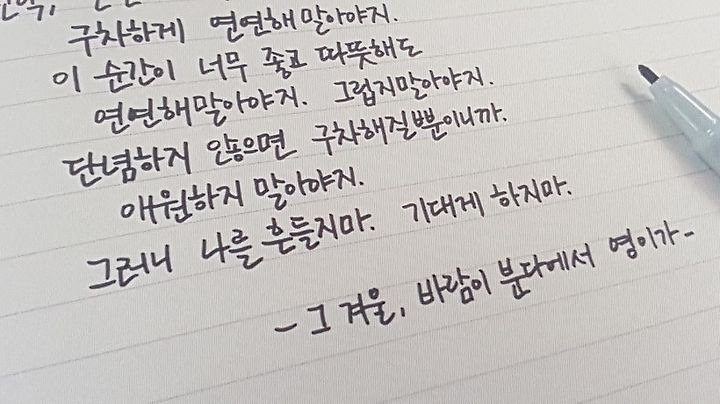 구차하게 연연해말아야지.
이 순간이 너무 좋고 따뜻해도
연연해말아야지. 그립지말아야지.
단념하지 않으면 구차해질뿐이니까.
애원하지 말아야지.
그러니 나를 흔들지마. 기대게 하지마.
- 그 겨울, 바람이 분다에서 영이가 -